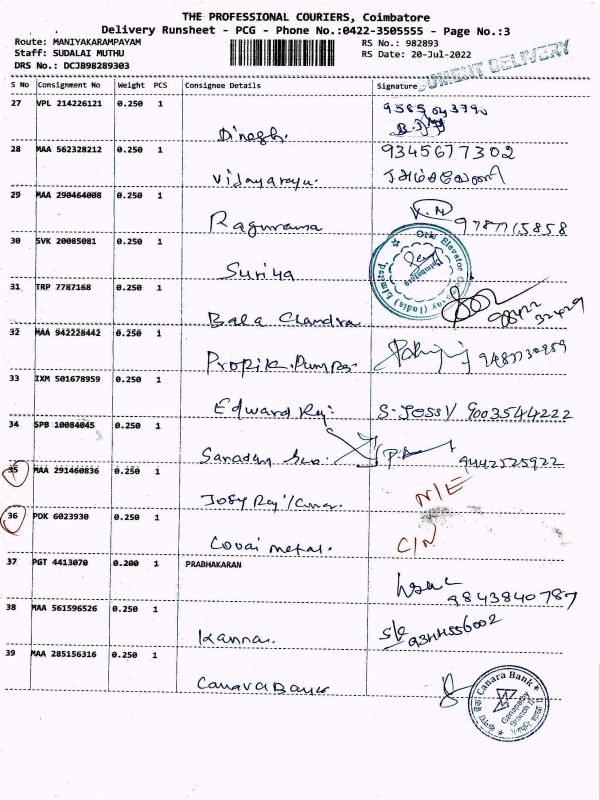 THE PROFESSIONAL COURIERS, Coimbatore
Delivery Runsheet - PCG - Phone No.:0422-3505555 - Page No.:3
Route: MANIYAKARAMPAYAM RS No.: 982893
Staff: SUDALAI MUTHU RS Date: 20-Jul-2022
DRS No.: DCJB98289303
DELIVERY
S No Consignment No Weight PCS Consignee Details Signature
27 VPL 214226121 0.250 1
Dinesh.
28 MAA 562328212 0.250 1 9345677302
Vijayaraju.
29 MAA 290464008 0.250 1 K.N
Ragurama 9787715858
30 SVK 20085081 0.250 1
Suriya
Otis Elevator Company (India) Limited
31 TRP 7787168 0.250 1
Bala Chandra
32 MAA 942228442 0.250 1
33 IXM 501678959 0.250 1
Edward Raj. S. JESSY 9003544222
34 SPB 10084045 0.250 1
9442525922
35 MAA 291460836 0.250 1 N/E
36 PDK 6023930 0.250 1
Covai metal. C/N
37 PGT 4413070 0.200 1 PRABHAKARAN
9843840787
38 MAA 561596526 0.250 1
Kannan.
39 MAA 285156316 0.250 1
Canara Bank
Canara Bank
Ganapathy
Branch